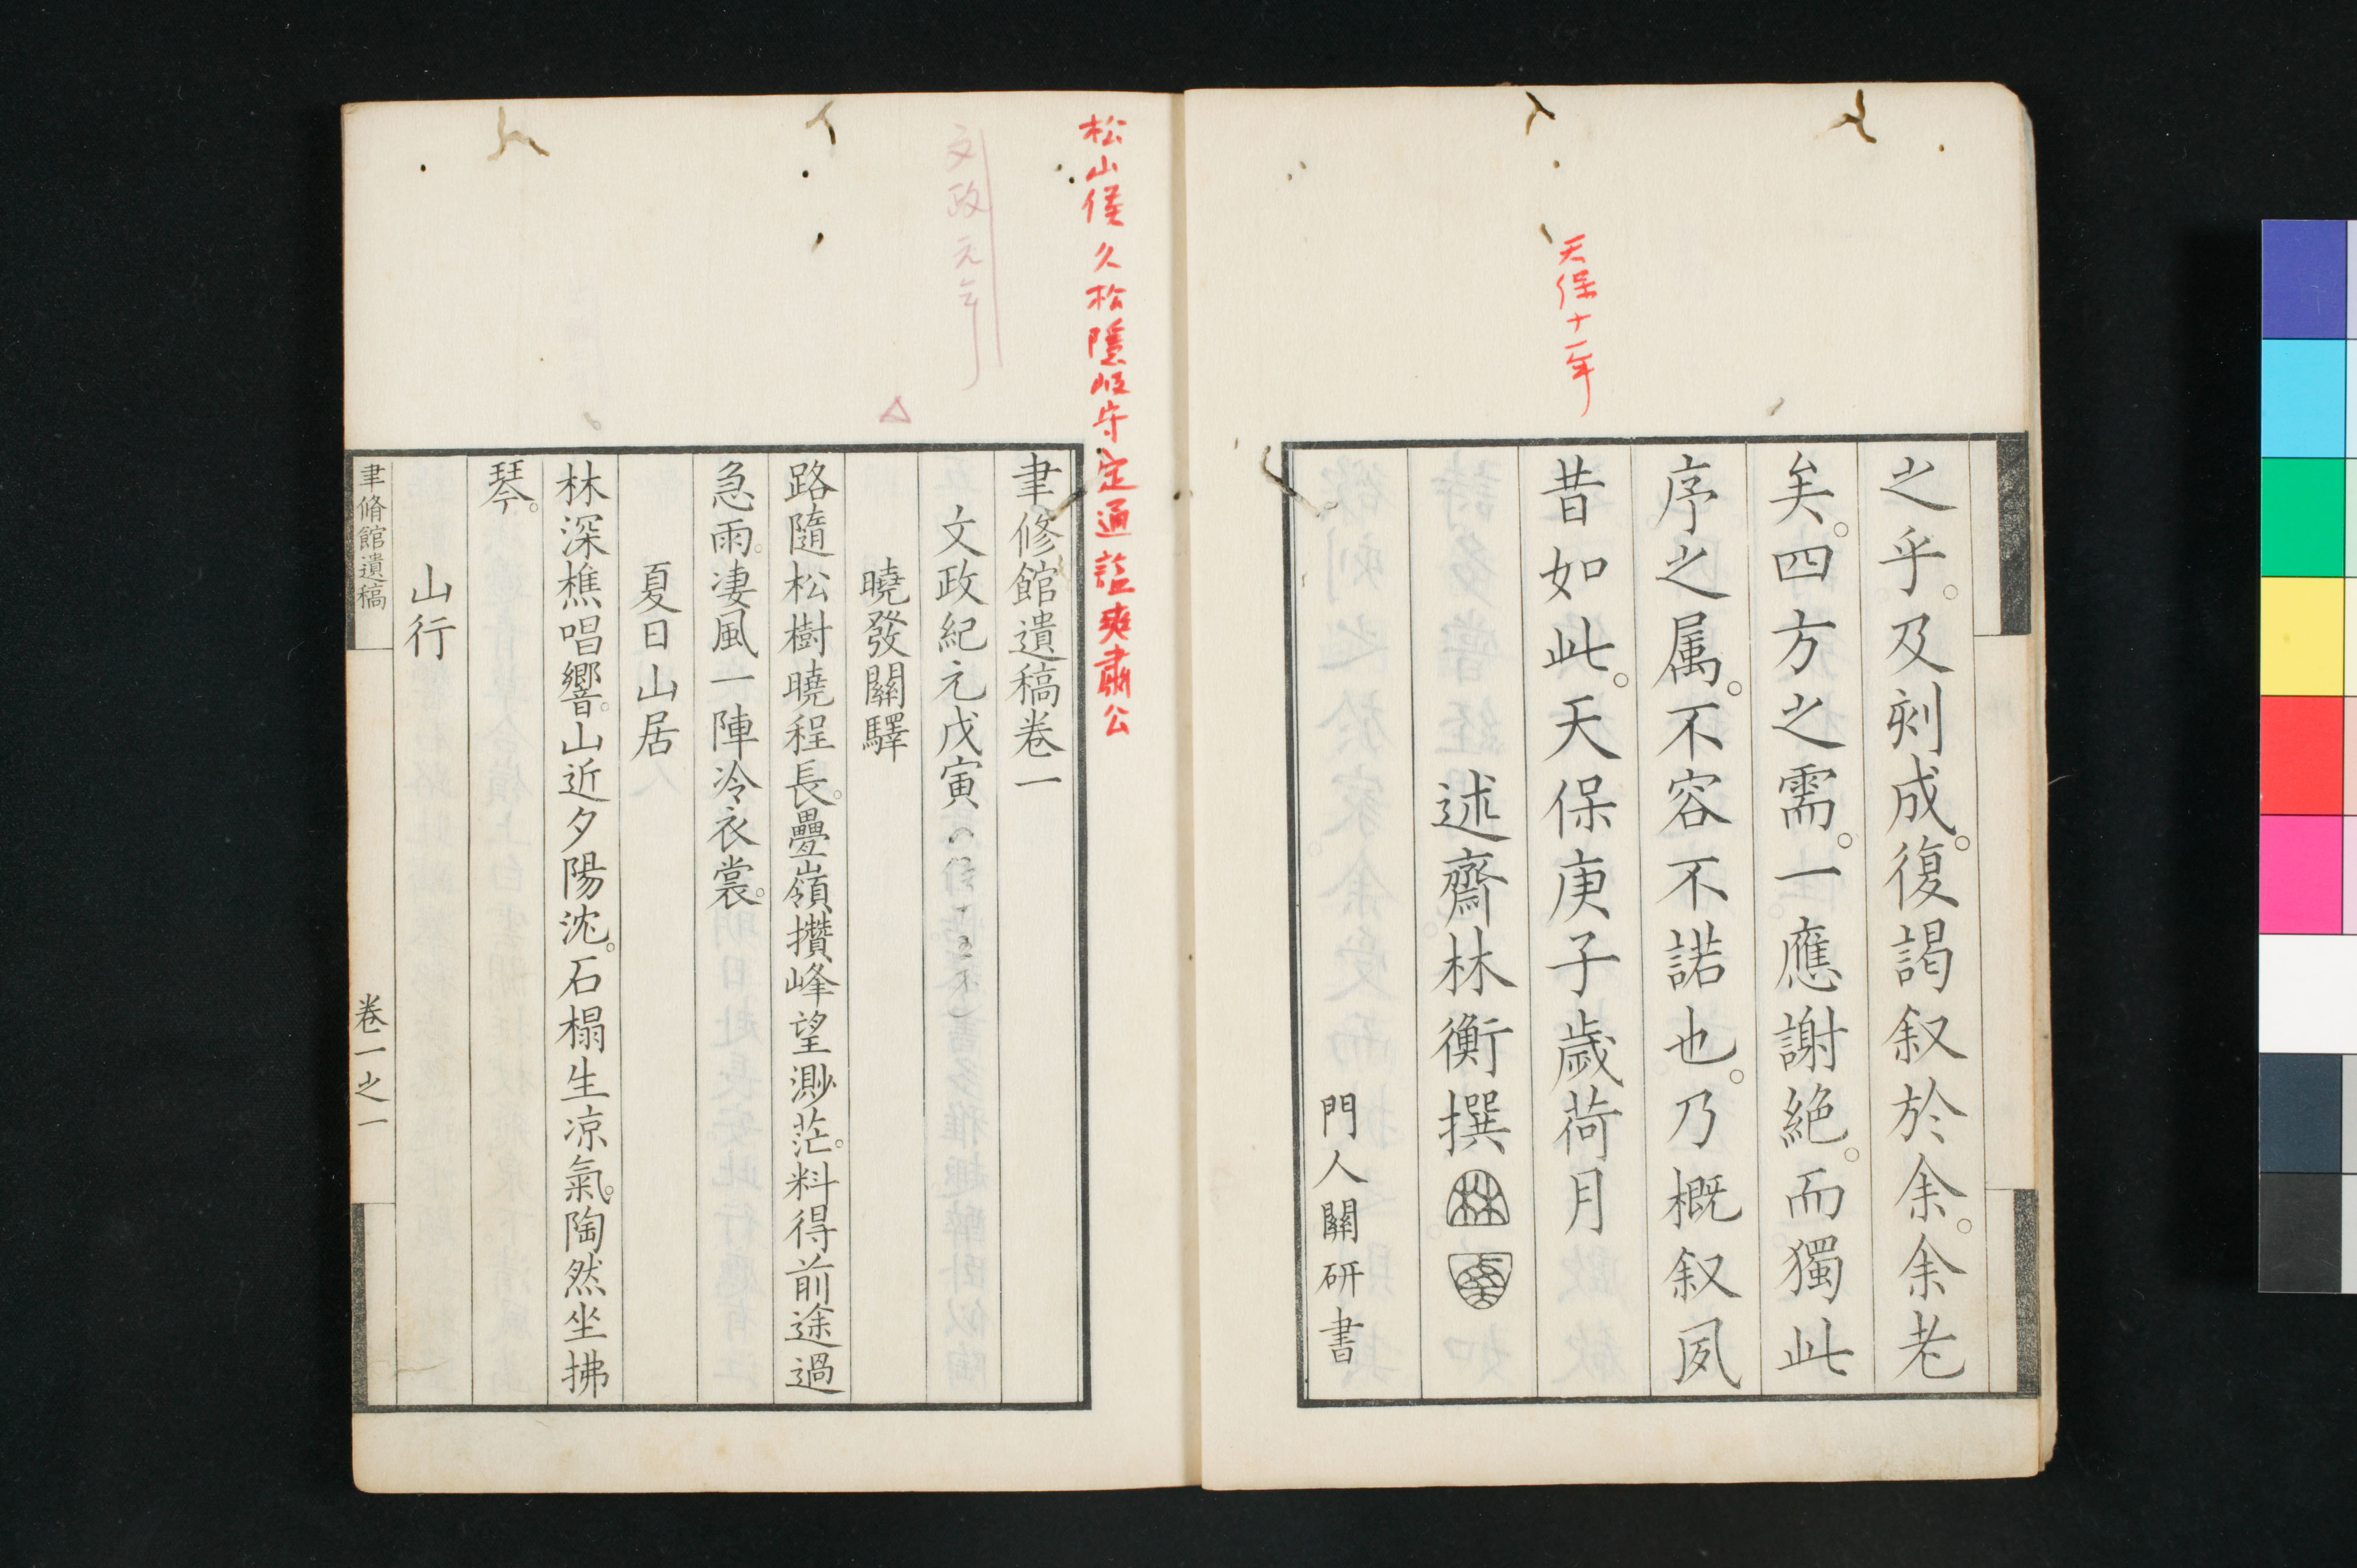 天保十一年
之乎。及刻成。復謁叙於余。余老
矣。四方之需。一應謝絶。而獨此
序之属。不容不諾也。乃概叙夙
昔如此。天保庚子歳荷月
述齋林衡撰
門人關研書
松山侯久松隱岐守定通謚爽肅公
文政元年
聿修館遺稿卷一
文政紀元戊寅
曉發關驛
路隨松樹曉程長。疊嶺攢峰望渺茫。料得前途過
急雨。凄風一陣冷衣裳。
夏日山居
林深樵唱響。山近夕陽沈。石榻生凉氣。陶然坐拂
琴。
山行
聿脩館遺稿
卷一之一